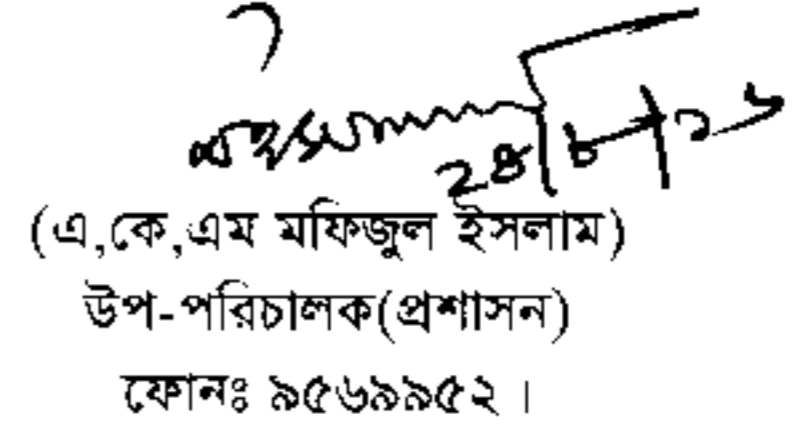 (এ,কে,এম মফিজুল ইসলাম)
উপ-পরিচালক(প্রশাসন)
ফোনঃ ৯৫৬৯৯৫২।